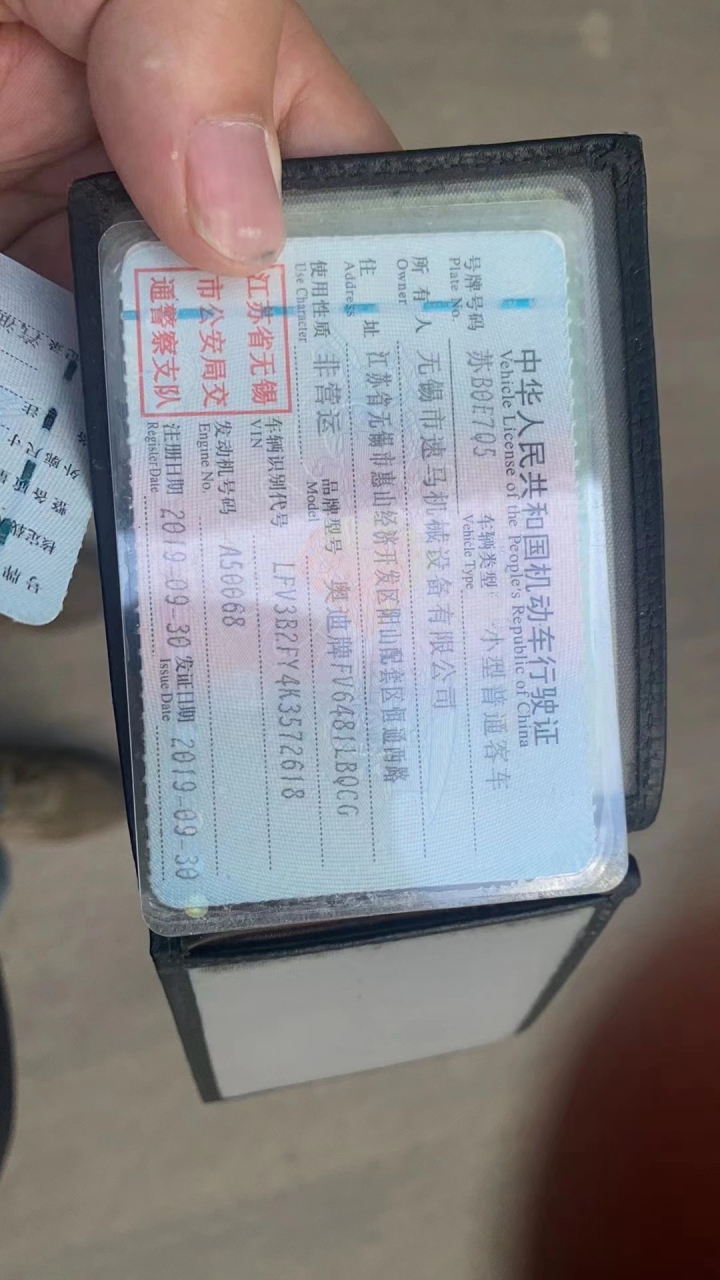 中华人民共和国机动车行驶证
Vehicle License of the People's Republic of China
号牌号码 苏B0E7Q5 车辆类型 小型普通客车
Plate No. Vehicle Type
所有人 无锡市速马机械设备有限公司
Owner
住址 江苏省无锡市惠山经济开发区阳山配套区恒通西路
Address
使用性质 非营运 品牌型号 奥迪牌FV6481LBQCG
Use Character Model
江苏省无锡
市公安局交
通警察支队
车辆识别代号 LFV3B2FY4K3572618
VIN
发动机号码 A50068
Engine No.
注册日期 2019-09-30 发证日期 2019-09-30
Register Date Issue Date
号牌
核定载
整备质量
外廓尺寸